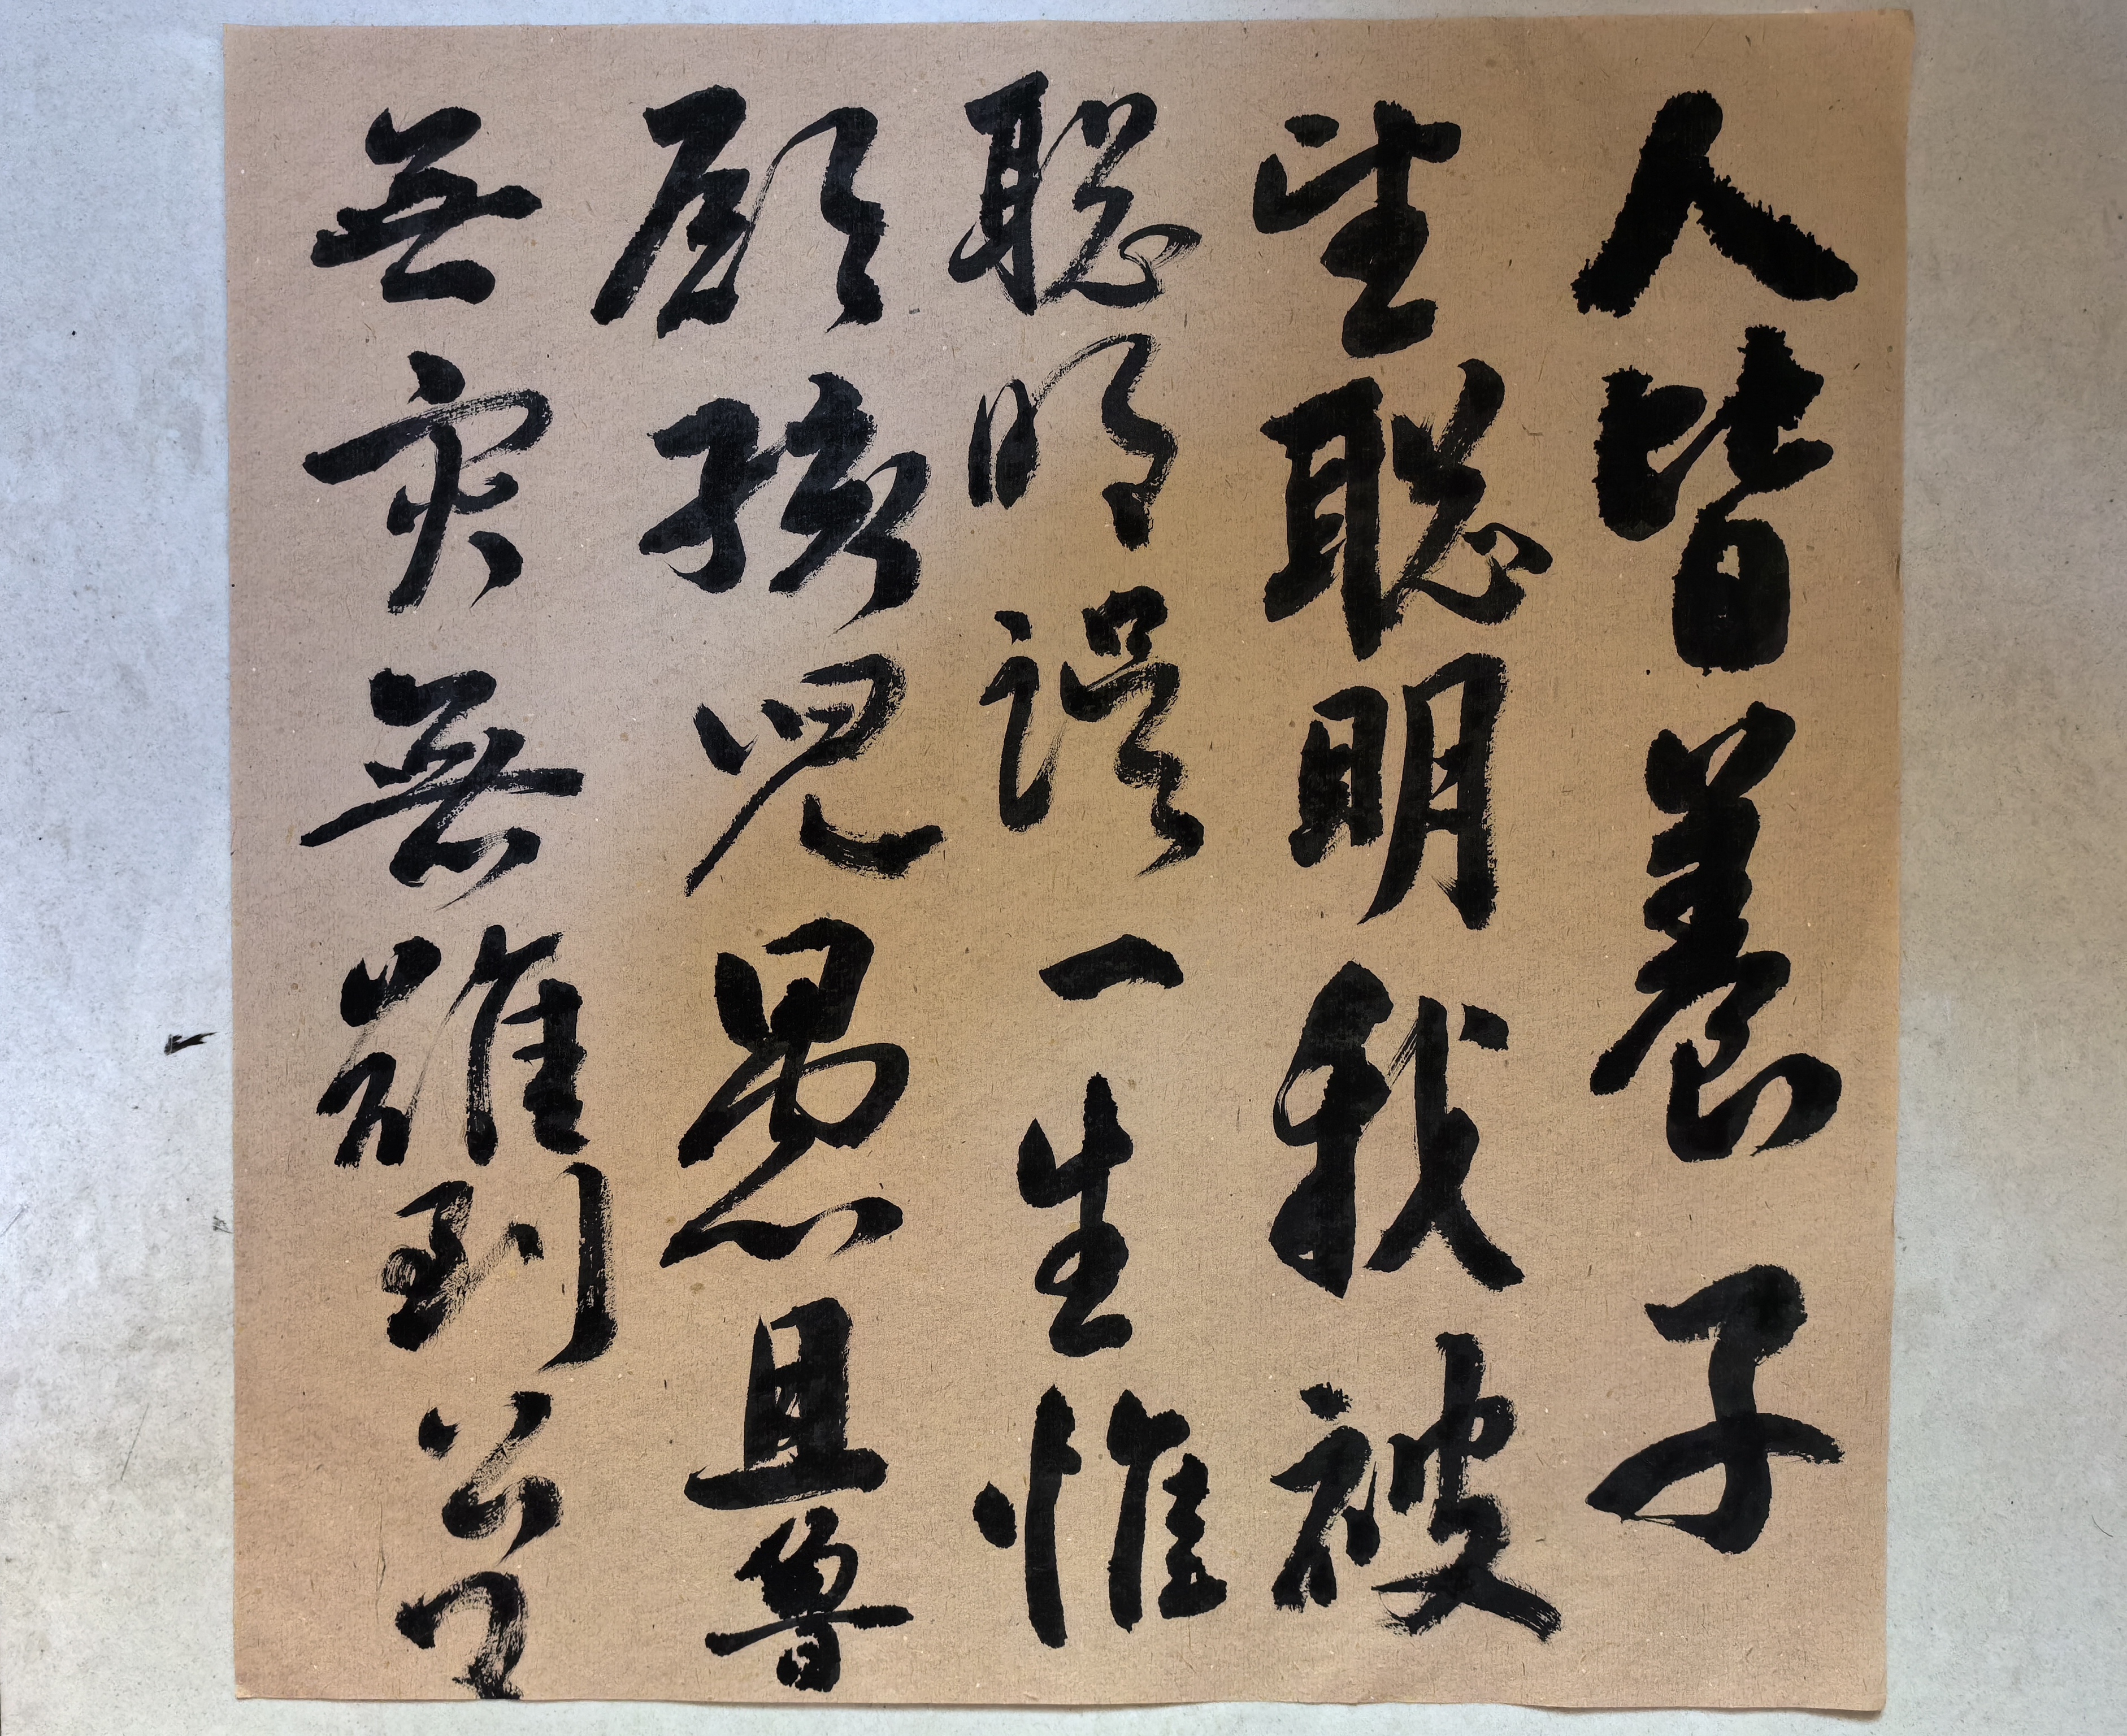 人皆養子
望聰明我被
聰明誤一生惟
願孩兒愚且魯
無灾無難到公卿